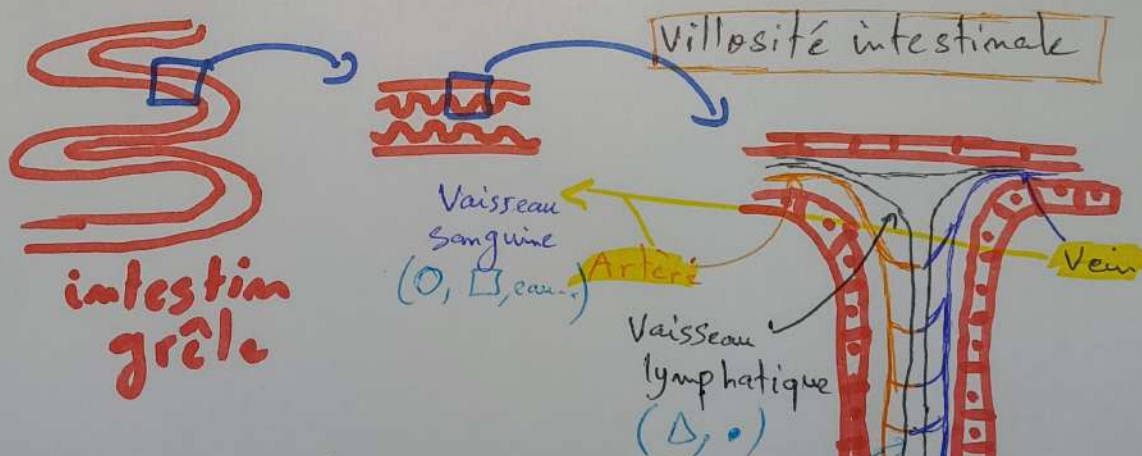 Villosité intestinale
intestin
grêle
Vaisseau
sanguine
(○, □, eau..)
Artèré
Vein
Vaisseau
lymphatique
(△, •)